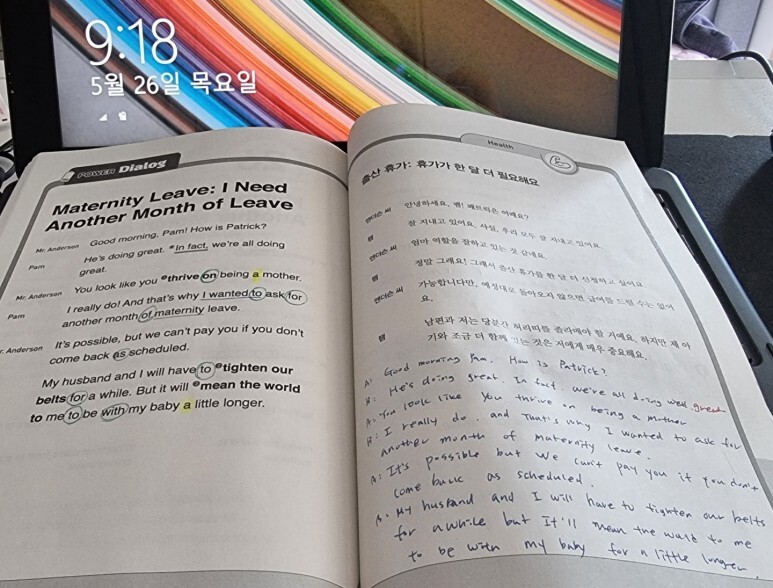 9:18
5월 26일 목요일
POWER Dialog
Maternity Leave: I Need
Another Month of Leave
Mr. Anderson Good morning, Pam! How is Patrick?
Pam He's doing great. In fact, we're all doing
great.
Mr. Anderson You look like you thrive on being a mother.
Pam I really do! And that's why I wanted to ask for
another month of maternity leave.
r. Anderson It's possible, but we can't pay you if you don't
come back as scheduled.
My husband and I will have to tighten our
belts for a while. But it will mean the world
to me to be with my baby a little longer.
Health
출산 휴가: 휴가가 한 달 더 필요해요
앤더슨 씨 안녕하세요, 팸! 패트릭은 어때요?
팸 잘 지내고 있어요. 사실, 우리 모두 잘 지내고 있어요.
앤더슨 씨 엄마 역할을 잘하고 있는 것 같네요.
팸 정말 그래요! 그래서 출산 휴가를 한 달 더 신청하고 싶어요.
앤더슨 씨 가능합니다만, 예정대로 돌아오지 않으면 급여를 드릴 수는 없어
요.
팸 남편과 저는 당분간 허리띠를 졸라매야 할 거예요. 하지만 제 아
기와 조금 더 함께 있는 것은 저에게 매우 중요해요.
A: Good morning Pam. How is Patrick?
B: He's doing great. In fact, we're all doing well. great
A: You look like you thrive on being a mother
B: I really do. and That's why I wanted to ask for
another month of maternity leave.
A: It's possible but we can't pay you if you don't
come back as scheduled.
B: My husband and I will have to tighten our belts
for awhile but It'll mean the world to me
to be with my baby for a little longer